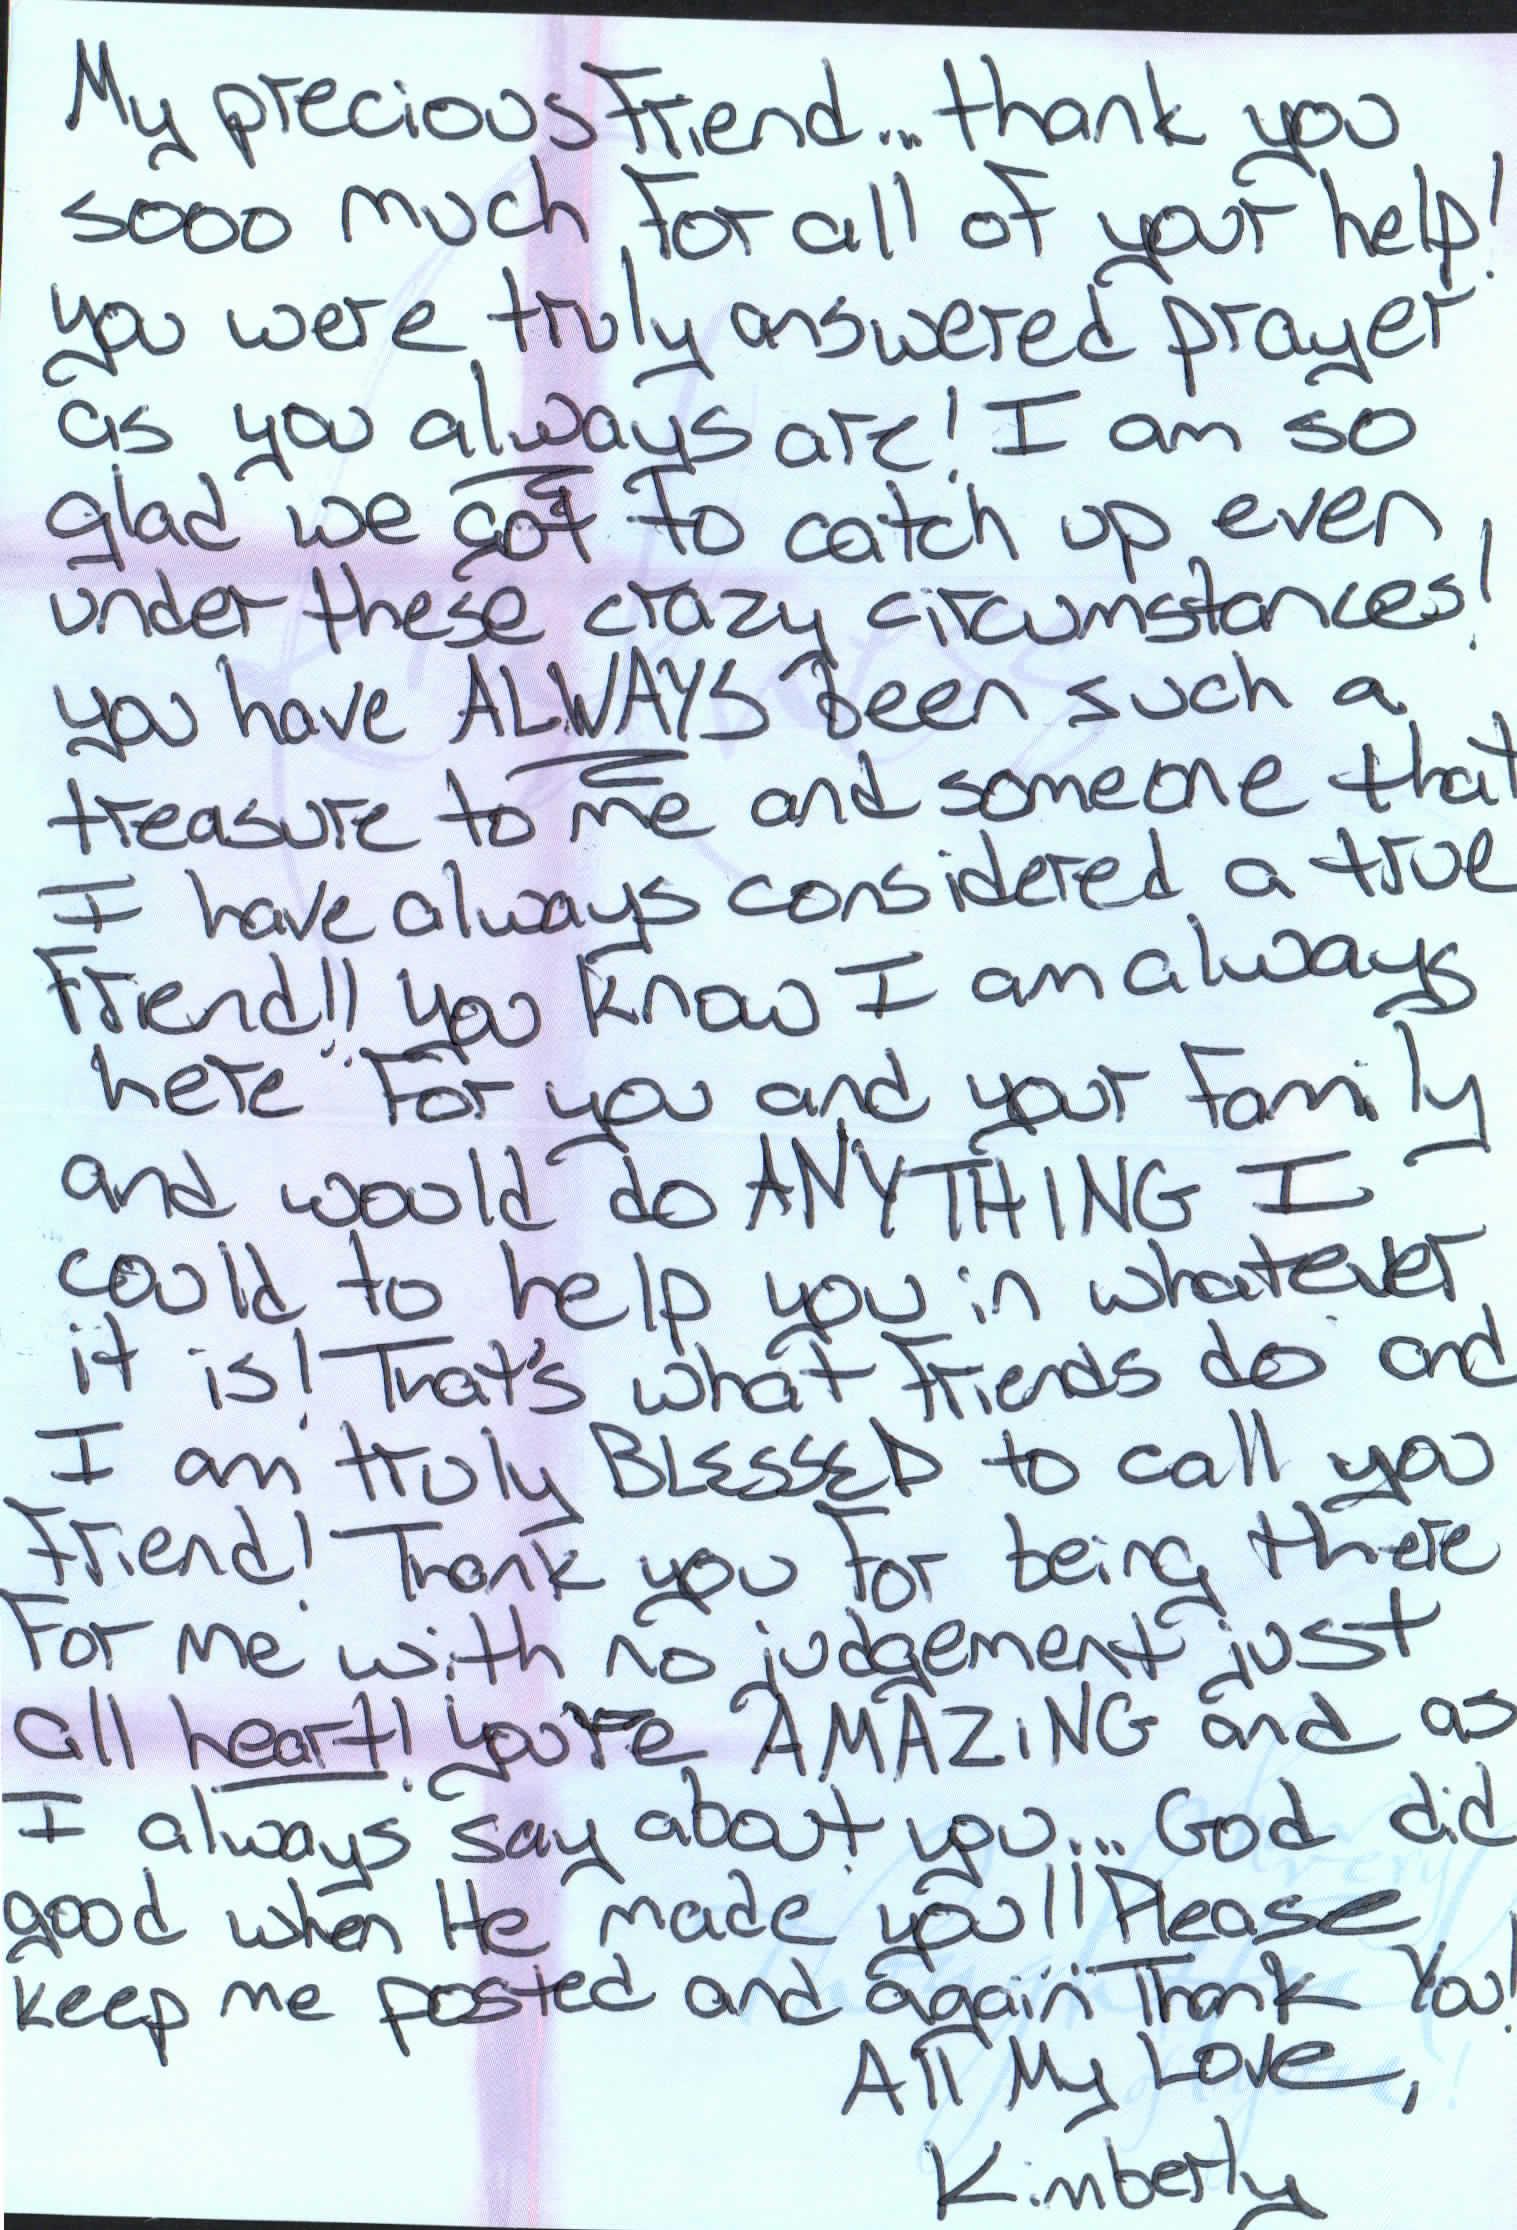 My precious friend... thank you
sooo much for all of your help!
you were truly answered prayer
as you always are! I am so
glad we got to catch up even
under these crazy circumstances!
you have ALWAYS been such a
treasure to me and someone that
I have always considered a true
friend!! you know I am always
here for you and your family
and would do ANYTHING I
could to help you in whatever
it is! That's what friends do and
I am truly BLESSED to call you
friend! Thank you for being there
for me with no judgement just
all heart! you're AMAZiNG and as
I always say about you... God did
good when He made you!! Please
keep me posted and again Thank You!
All My Love,
Kimberly